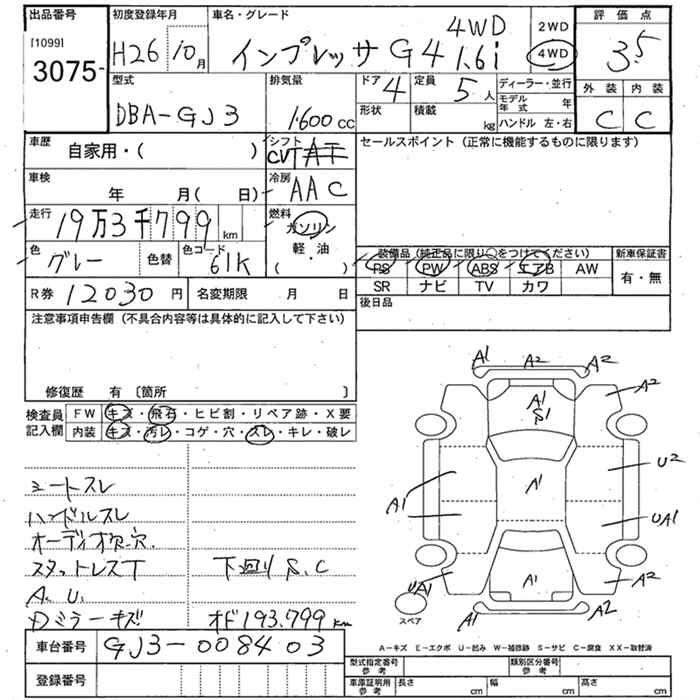 出品番号 初度登録年月 車名・グレード 評価点
[1099] 3075- H26 10月 インプレッサ G4 1.6i 4WD 2WD 4WD 3.5
型式 排気量 ドア 定員 ディーラー・並行 外装 内装
DBA-GJ3 1.600cc 4 5人 モデル年式 年 C C
形状 積載 kg ハンドル 左・右
車歴 自家用・( ) シフト CVT AT セールスポイント(正常に機能するものに限ります)
車検 年 月(日) 冷房 AAC
走行 19万3千799km 燃料 ガソリン
色 グレー 色替 色コード 61K 軽・油 ( ) 装備品(純正品に限り○をつけてください) 新車保証書
PS PW ABS エアB AW 有・無
R券 12030円 名変期限 月 日 SR ナビ TV カワ
注意事項申告欄(不具合内容等は具体的に記入して下さい) 後日品
修復歴 有〔箇所 〕
検査員記入欄 FW キズ・飛石・ヒビ割・リペア跡・X要
内装 キズ・汚レ・コゲ・穴・スレ・キレ・破レ
シートスレ
ハンドルスレ
オーディオ欠.穴.
スタットレスT 下廻り S.C
A. U.
Dミラーキズ オド193.799km
A1 A2 A2
A1 S1 A2
A1 A1 U2
UA1
UA1 A1 A2
スペア A1 A2
車台番号 GJ3-008403
A-キズ E-エクボ U-凹み W-補修跡 S-サビ C-腐食 XX-取替済
登録番号 型式指定番号 参考 類別区分番号 参考
車庫証明用 参考 長さ cm 幅 cm 高さ cm